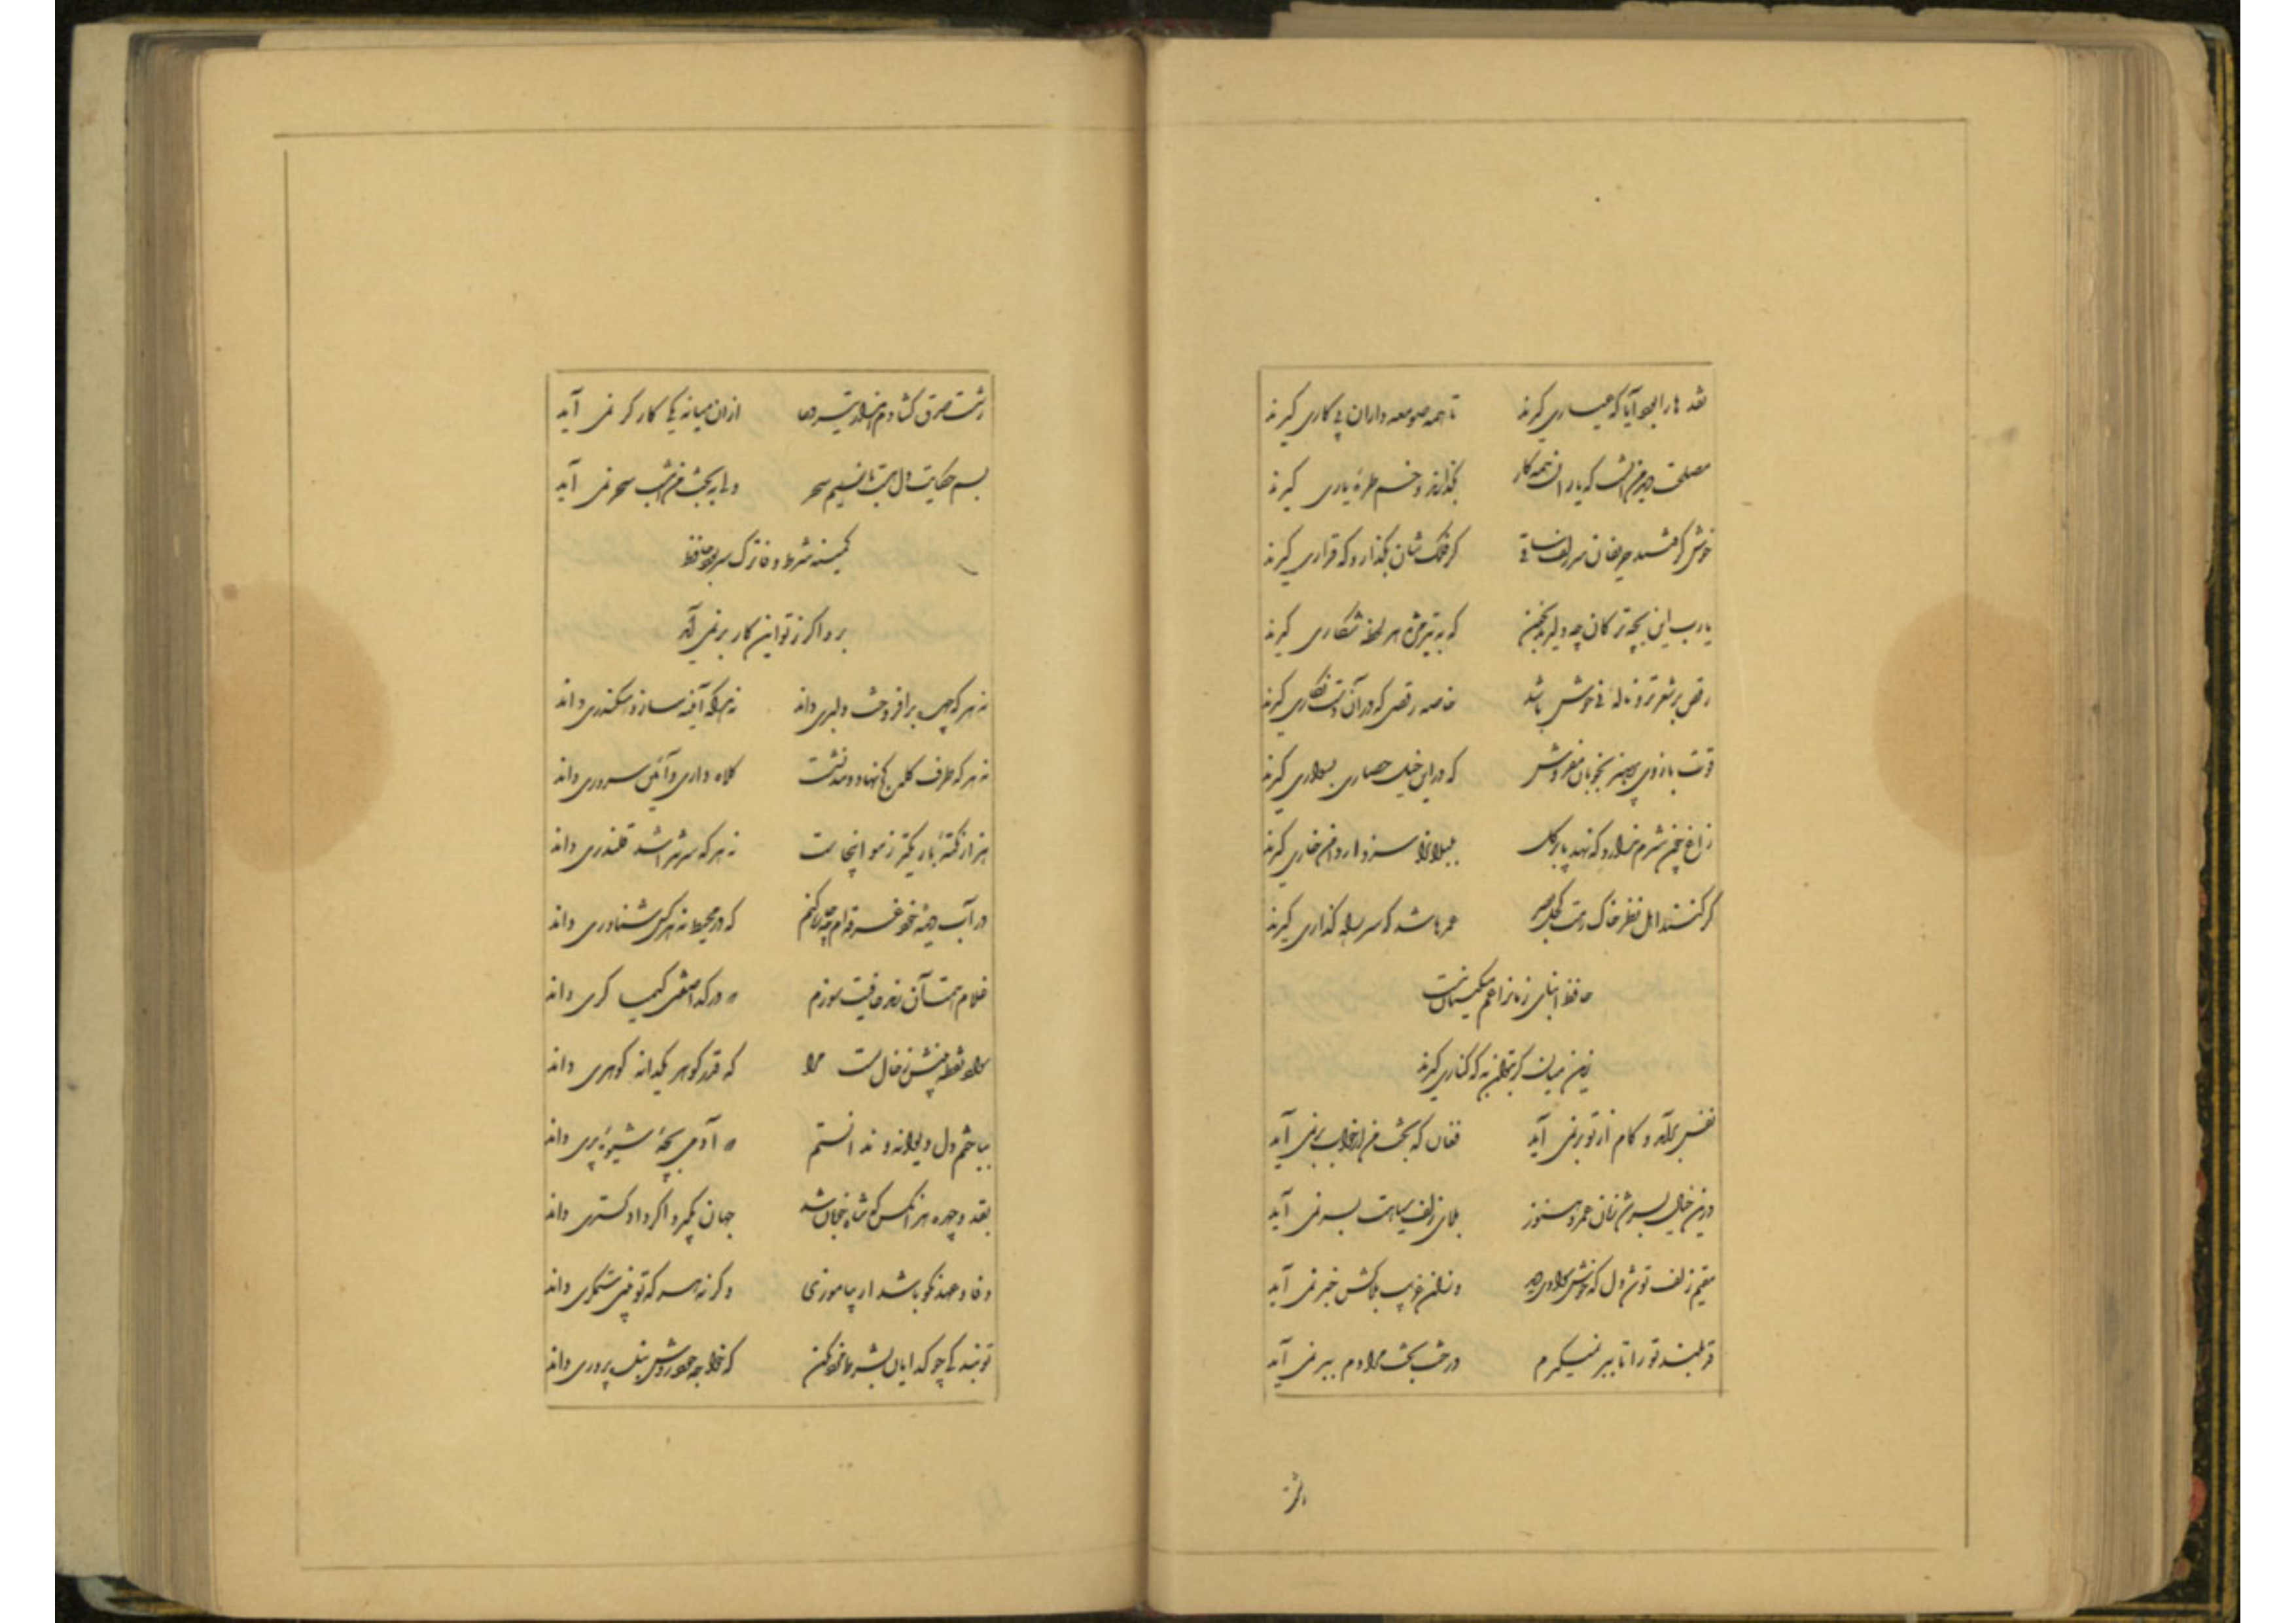 نقد ها را بود آیا که عیاری گیرند تا همه صومعه داران پی کاری گیرند
مصلحت دید من آنست که یاران همه کار بگذارند و خم طرهٔ یاری گیرند
خوش گرفتند حریفان سر زلف ساقی گر فلکشان بگذارد که قراری گیرند
یارب این بچه ترکان چه دلیرند بخون که به تیر مژه هر لحظه شکاری گیرند
رقص بر شعر تر و ناله نی خوش باشد خاصه رقصی که در آن دست نگاری گیرند
قوت بازوی پرهیز بخوبان مفروش که در این خیل حصاری بسواری گیرند
زاغ چون شرم ندارد که نهد پا بر گل بلبلانرا سزد ار دامن خاری گیرند
گر کنند اهل نظر خاک رهت کحل بصر عمرها شد که سر راه گذاری گیرند
حافظ ابنای زمانرا غم مسکینان نیست
زین میان گر بتوان به که کناری گیرند
نفس برآمد و کام از تو بر نمی آید فغان که بخت من از خواب بر نمی آید
درین خیال بسر شد زمان عمر و هنوز بلای زلف سیاهت بسر نمی آید
مقیم زلف تو شد دل که خوش سوادی دید وزان غریب بلاکش خبر نمی آید
قد بلند تو را تا ببر نمیگیرم درخت بخت مرادم ببر نمی آید
ز شست
ز شست صدق گشادم هزار تیر دعا ازان میانه یکی کارگر نمی آید
بسم حکایت دل هست با نسیم سحر ولی به بخت من امشب سحر نمی آید
کمینه شرط وفا ترک سر بود حافظ
برو اگر ز تو این کار بر نمی آید
نه هر که چهره برافروخت دلبری داند نه هر که آینه سازد سکندری داند
نه هر که طرف کله کج نهاد و تند نشست کلاه داری و آئین سروری داند
هزار نکتهٔ باریکتر ز مو اینجاست نه هر که سر بتراشد قلندری داند
در آب دیدهٔ خود غرقه ام چه چاره کنم که در محیط نه هر کس شناوری داند
غلام همت آن رند عافیت سوزم که در گدا صفتی کیمیا گری داند
سواد نقطه بینش ز خال تست مرا که قدر گوهر یکدانه گوهری داند
بباختم دل دیوانه و ندانستم که آدمی بچهٔ شیوهٔ پری داند
بقد و چهره هر آنکس که شاه خوبان شد جهان بگیرد اگر دادگستری داند
وفا و عهد نکو باشد ار بیاموزی وگرنه هر که تو بینی ستمگری داند
تو بندگی چو گدایان بشرط مزد مکن که خواجه خود روش بنده پروری داند